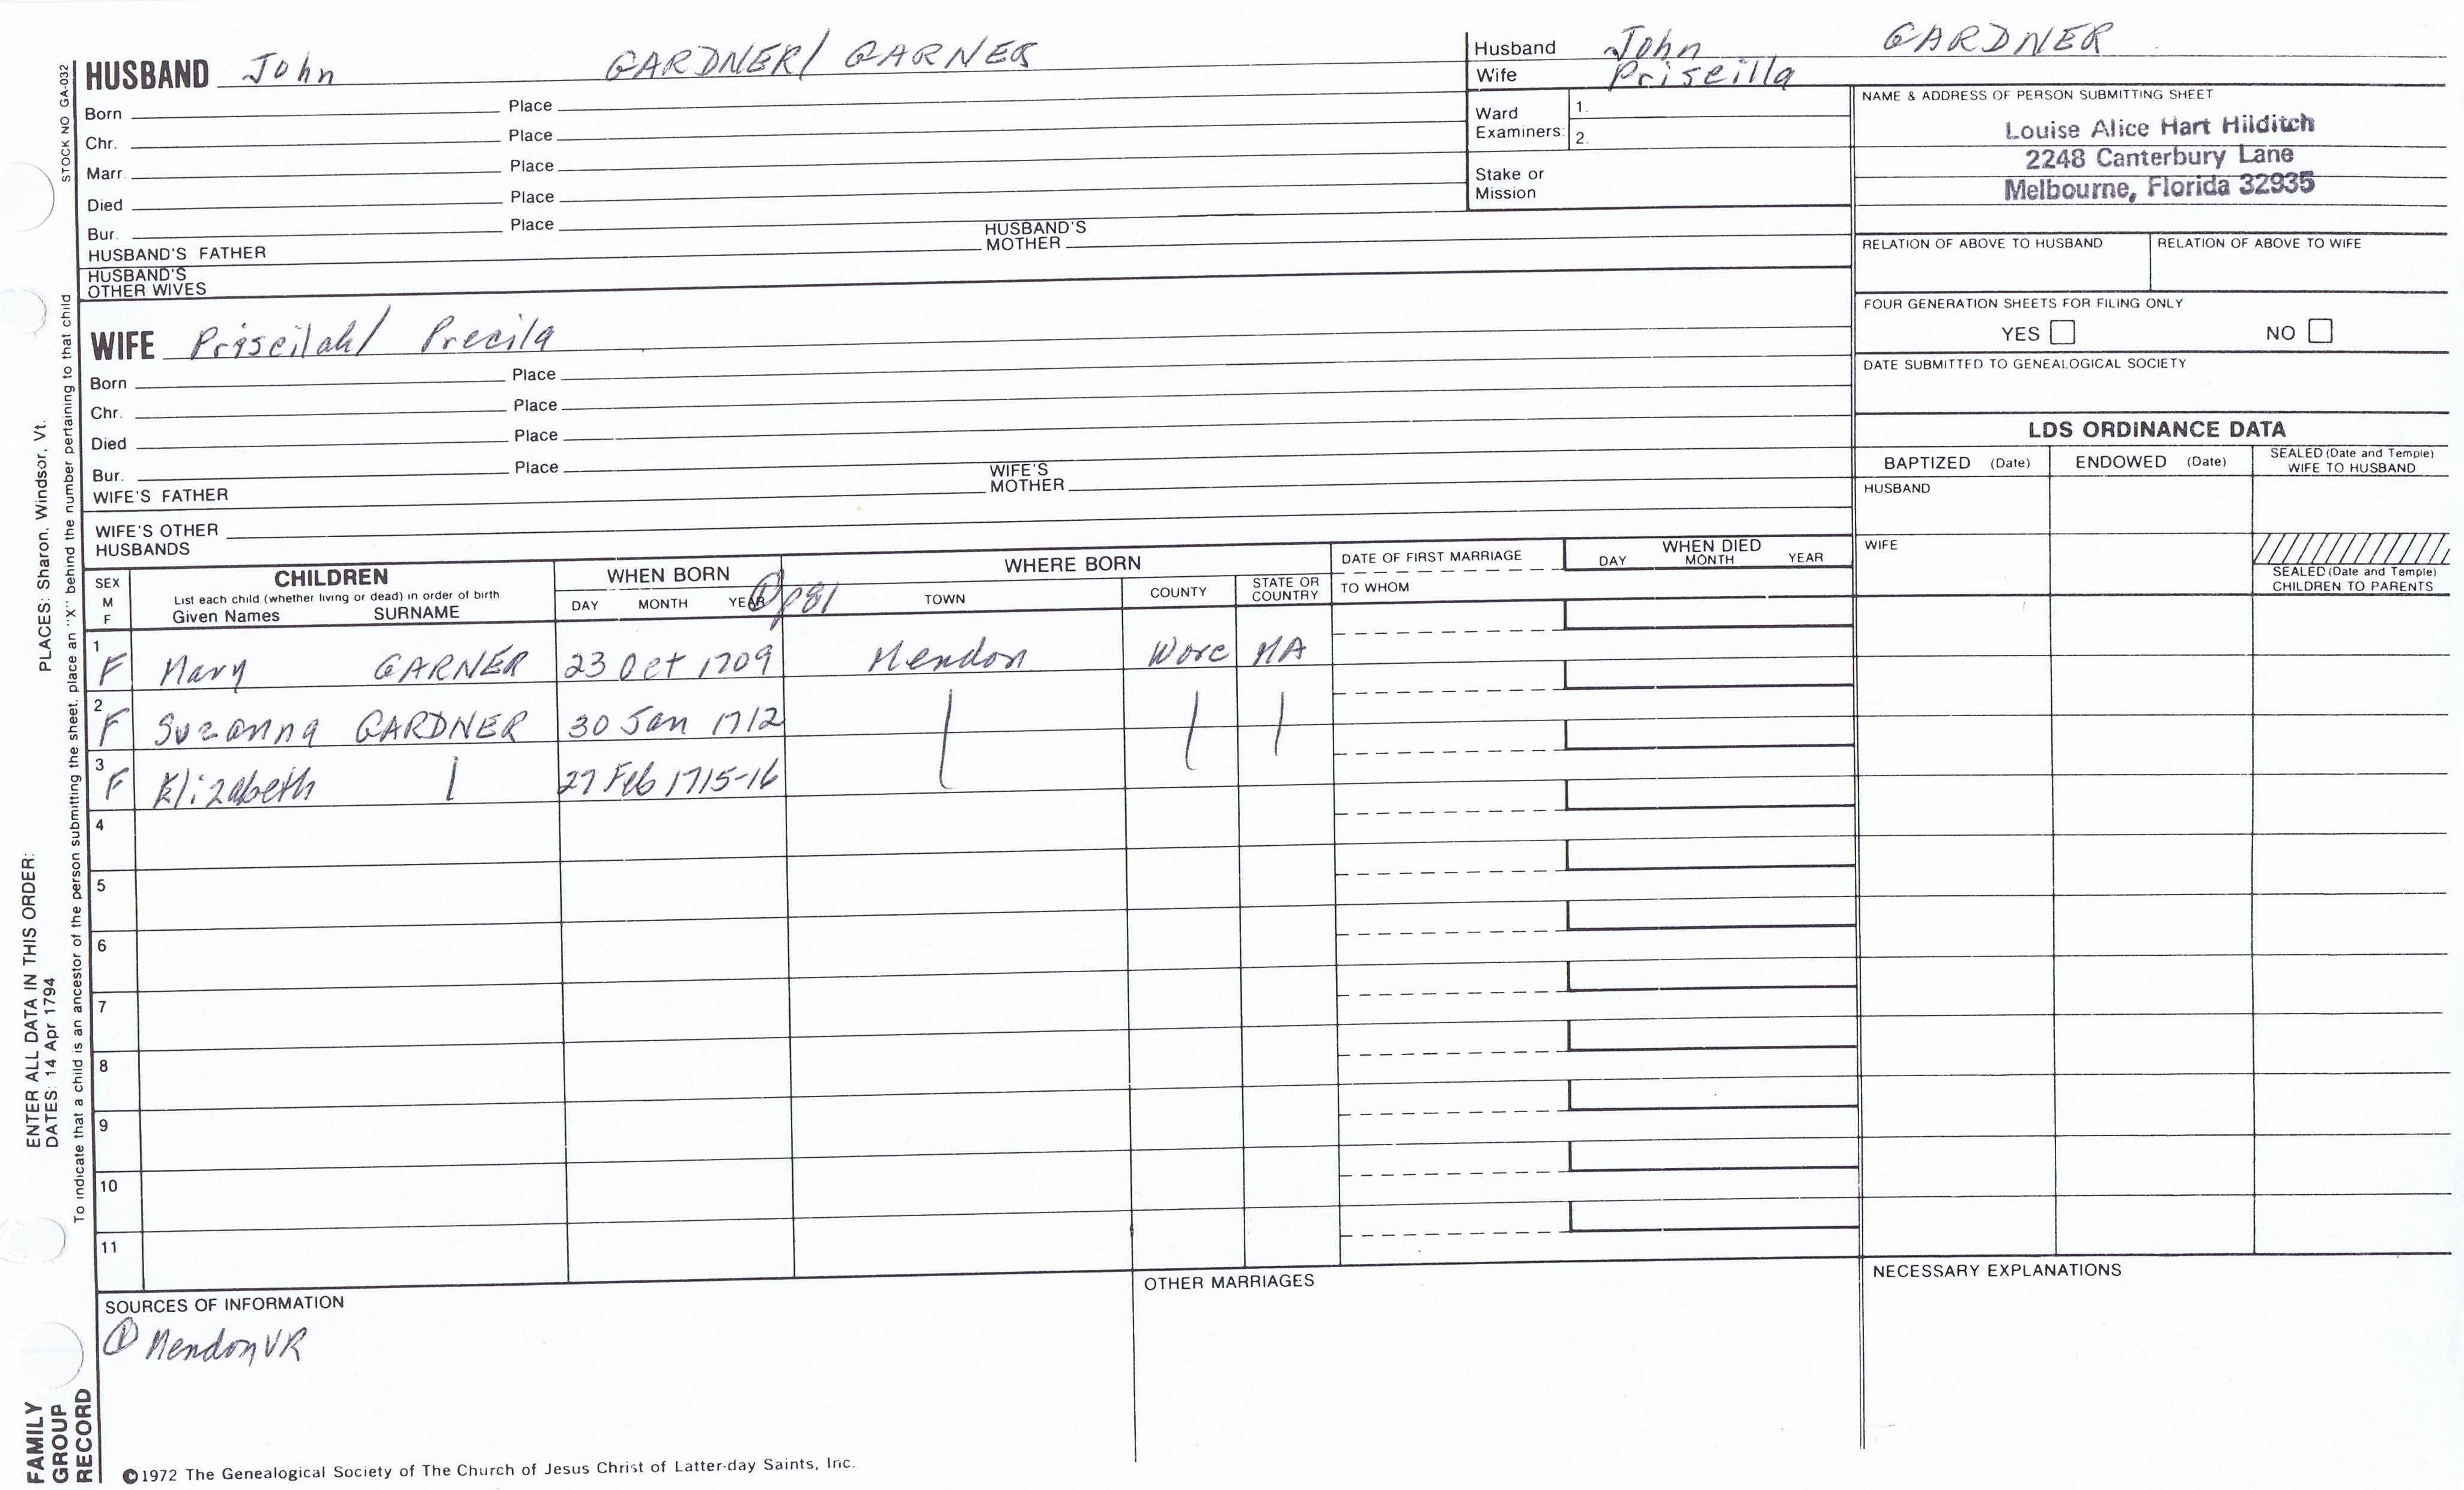 HUSBAND John GARDNER/ GARNER
Born Place
Chr. Place
Marr. Place
Died Place
Bur. Place
HUSBAND'S FATHER HUSBAND'S MOTHER
HUSBAND'S OTHER WIVES
WIFE Priscilah/ Precila
Born Place
Chr. Place
Died Place
Bur. Place
WIFE'S FATHER WIFE'S MOTHER
WIFE'S OTHER HUSBANDS
Husband John GARDNER
Wife Priscilla
Ward Examiners: 1.
2.
Stake or Mission
NAME & ADDRESS OF PERSON SUBMITTING SHEET
Louise Alice Hart Hilditch
2248 Canterbury Lane
Melbourne, Florida 32935
RELATION OF ABOVE TO HUSBAND RELATION OF ABOVE TO WIFE
FOUR GENERATION SHEETS FOR FILING ONLY
YES NO
DATE SUBMITTED TO GENEALOGICAL SOCIETY
LDS ORDINANCE DATA
BAPTIZED (Date) ENDOWED (Date) SEALED (Date and Temple) WIFE TO HUSBAND
HUSBAND
WIFE
SEALED (Date and Temple) CHILDREN TO PARENTS
SEX M F
CHILDREN
List each child (whether living or dead) in order of birth
Given Names SURNAME
WHEN BORN
DAY MONTH YEAR
① p81
WHERE BORN
TOWN COUNTY STATE OR COUNTRY
DATE OF FIRST MARRIAGE
TO WHOM
WHEN DIED
DAY MONTH YEAR
1 F Mary GARNER 23 Oct 1709 Mendon Worc MA
2 F Suzanna GARDNER 30 Jan 1712 | | |
3 F Elizabeth | 27 Feb 1715-16
4
5
6
7
8
9
10
11
SOURCES OF INFORMATION
① Mendon VR
OTHER MARRIAGES
NECESSARY EXPLANATIONS
©1972 The Genealogical Society of The Church of Jesus Christ of Latter-day Saints, Inc.
STOCK NO GA-032
PLACES: Sharon, Windsor, Vt.
To indicate that a child is an ancestor of the person submitting the sheet, place an "X" behind the number pertaining to that child
ENTER ALL DATA IN THIS ORDER:
DATES: 14 Apr 1794
FAMILY
GROUP
RECORD